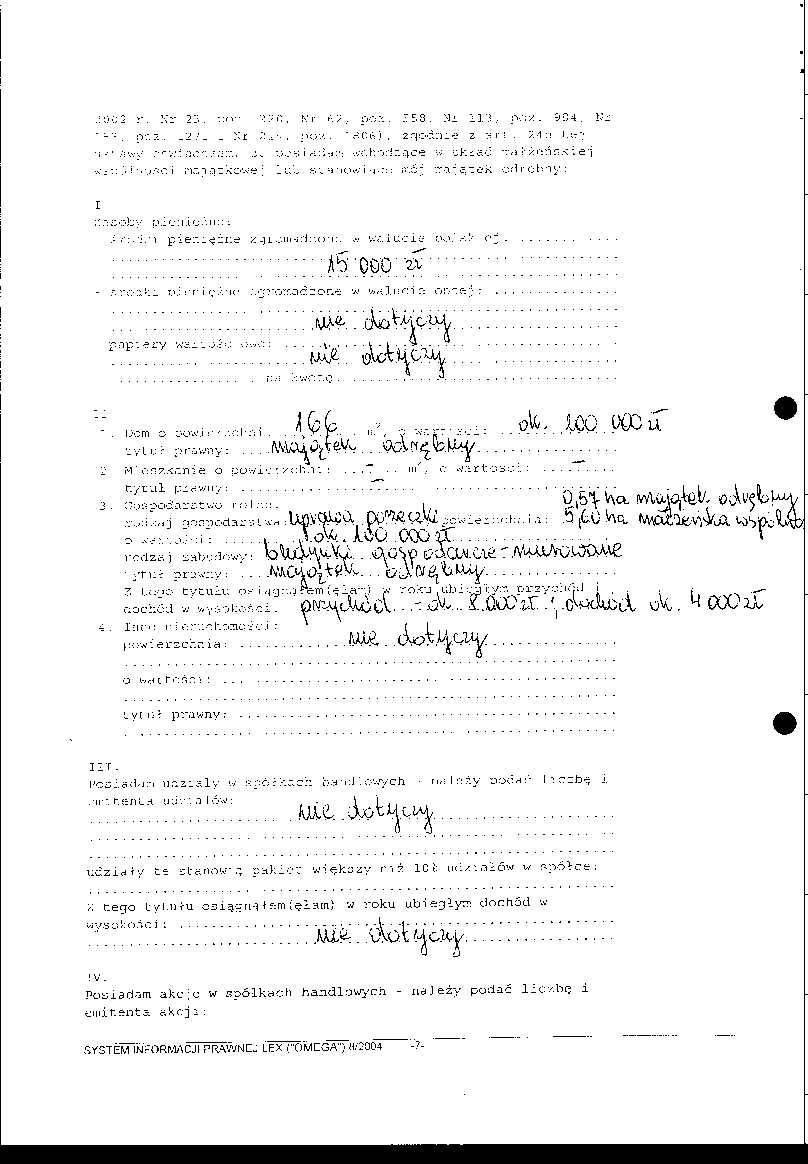 2002 r. Nr 23, poz. 220, Nr 62, poz. 558, Nr 113, poz. 984, Nr
poz. 1271 i Nr poz. 1806), zgodnie z art. 24h tej
ustawy oświadczam, że posiadam wchodzące w skład małżeńskiej
wspólności majątkowej lub stanowiące mój majątek odrębny:
I.
Zasoby pieniężne:
- środki pieniężne zgromadzone w walucie polskiej: ............
15 000 zł
- środki pieniężne zgromadzone w walucie obcej: ...............
nie dotyczy
- papiery wartościowe:
nie dotyczy
................ na kwotę: ...............
II.
1. Dom o powierzchni: 166 m², o wartości: ok. 100 000 zł
tytuł prawny: majątek odrębny
2. Mieszkanie o powierzchni: ... - ... m², o wartości: ... - ...
tytuł prawny: -
3. Gospodarstwo rolne: 0,57 ha majątek odrębny
rodzaj gospodarstwa: uprawa porzeczki powierzchnia: 5,60 ha małżeńska wspólno
o wartości: ok. 100 000 zł
rodzaj zabudowy: budynki gospodarcze - murowane
tytuł prawny: majątek odrębny
Z tego tytułu osiągnąłem(ęłam) w roku ubiegłym przychód i
dochód w wysokości: przychód - ok 8.000 zł ; dochód ok. 4 000 zł
4. Inne nieruchomości:
powierzchnia: nie dotyczy
o wartości: ...............
tytuł prawny: ...............
III.
Posiadam udziały w spółkach handlowych - należy podać liczbę i
emitenta udziałów:
nie dotyczy
udziały te stanowią pakiet większy niż 10% udziałów w spółce:
Z tego tytułu osiągnąłem(ęłam) w roku ubiegłym dochód w
wysokości: ...............
nie dotyczy
IV.
Posiadam akcje w spółkach handlowych - należy podać liczbę i
emitenta akcji:
SYSTEM INFORMACJI PRAWNEJ LEX ("OMEGA") 8/2004 -7-